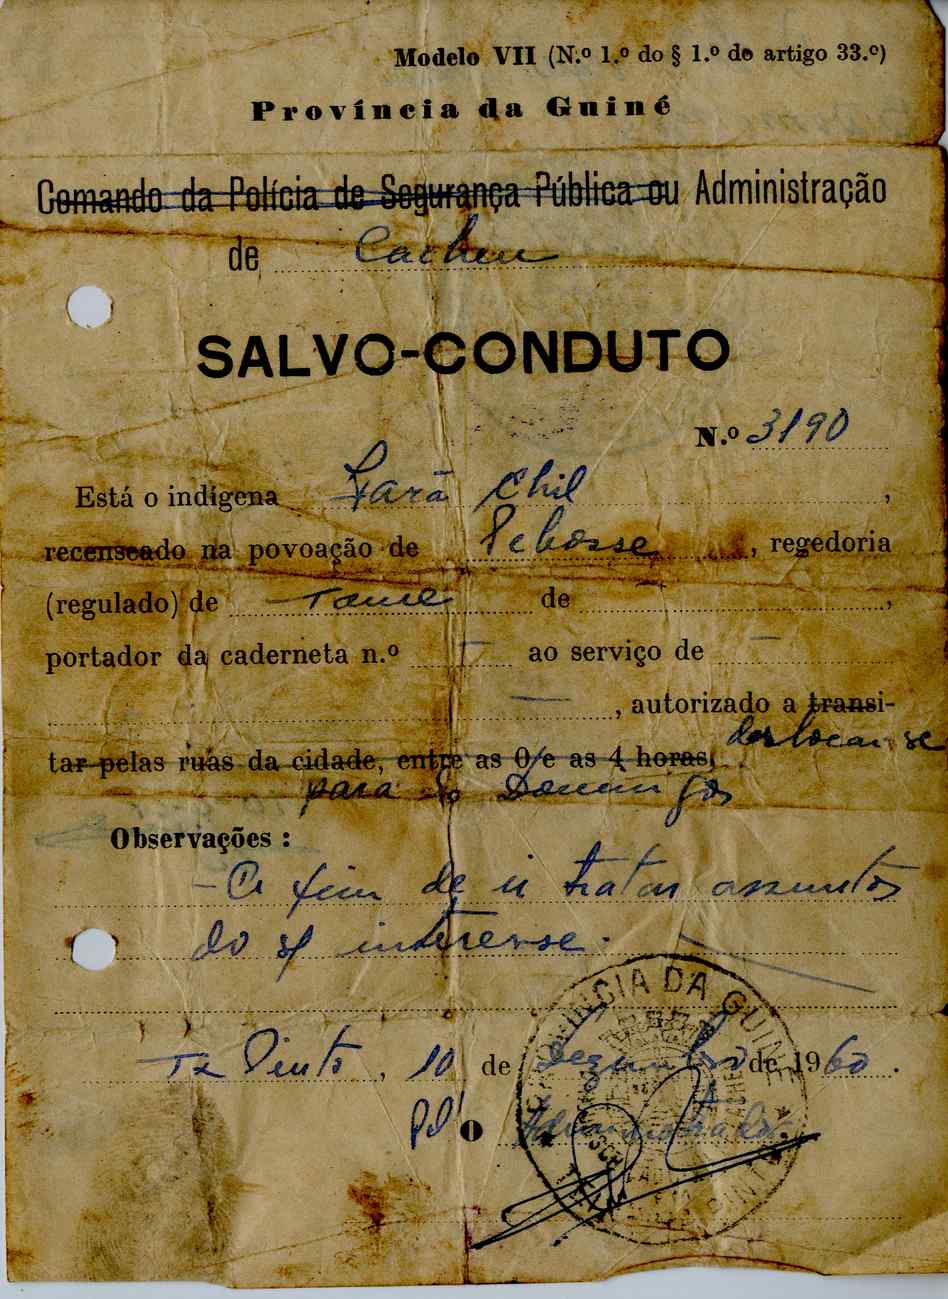 Modelo VII (N.º 1.º do § 1.º do artigo 33.º)
Província da Guiné
Comando da Polícia de Segurança Pública ou Administração
de Cacheu
SALVO-CONDUTO
N.º 3190
Está o indígena Lará Chil,
recenseado na povoação de Pebosse, regedoria
(regulado) de Tame de ,
portador da caderneta n.º — ao serviço de —
—, autorizado a transi-
tar pelas ruas da cidade, entre as 0 e as 4 horas, deslocar-se
para S. Domingos
Observações :
- A fim de ir tratar assuntos
do s/ interesse.
Tx Pinto, 10 de Dezembro de 1960.
O Administrador
PROVÍNCIA DA GUINÉ